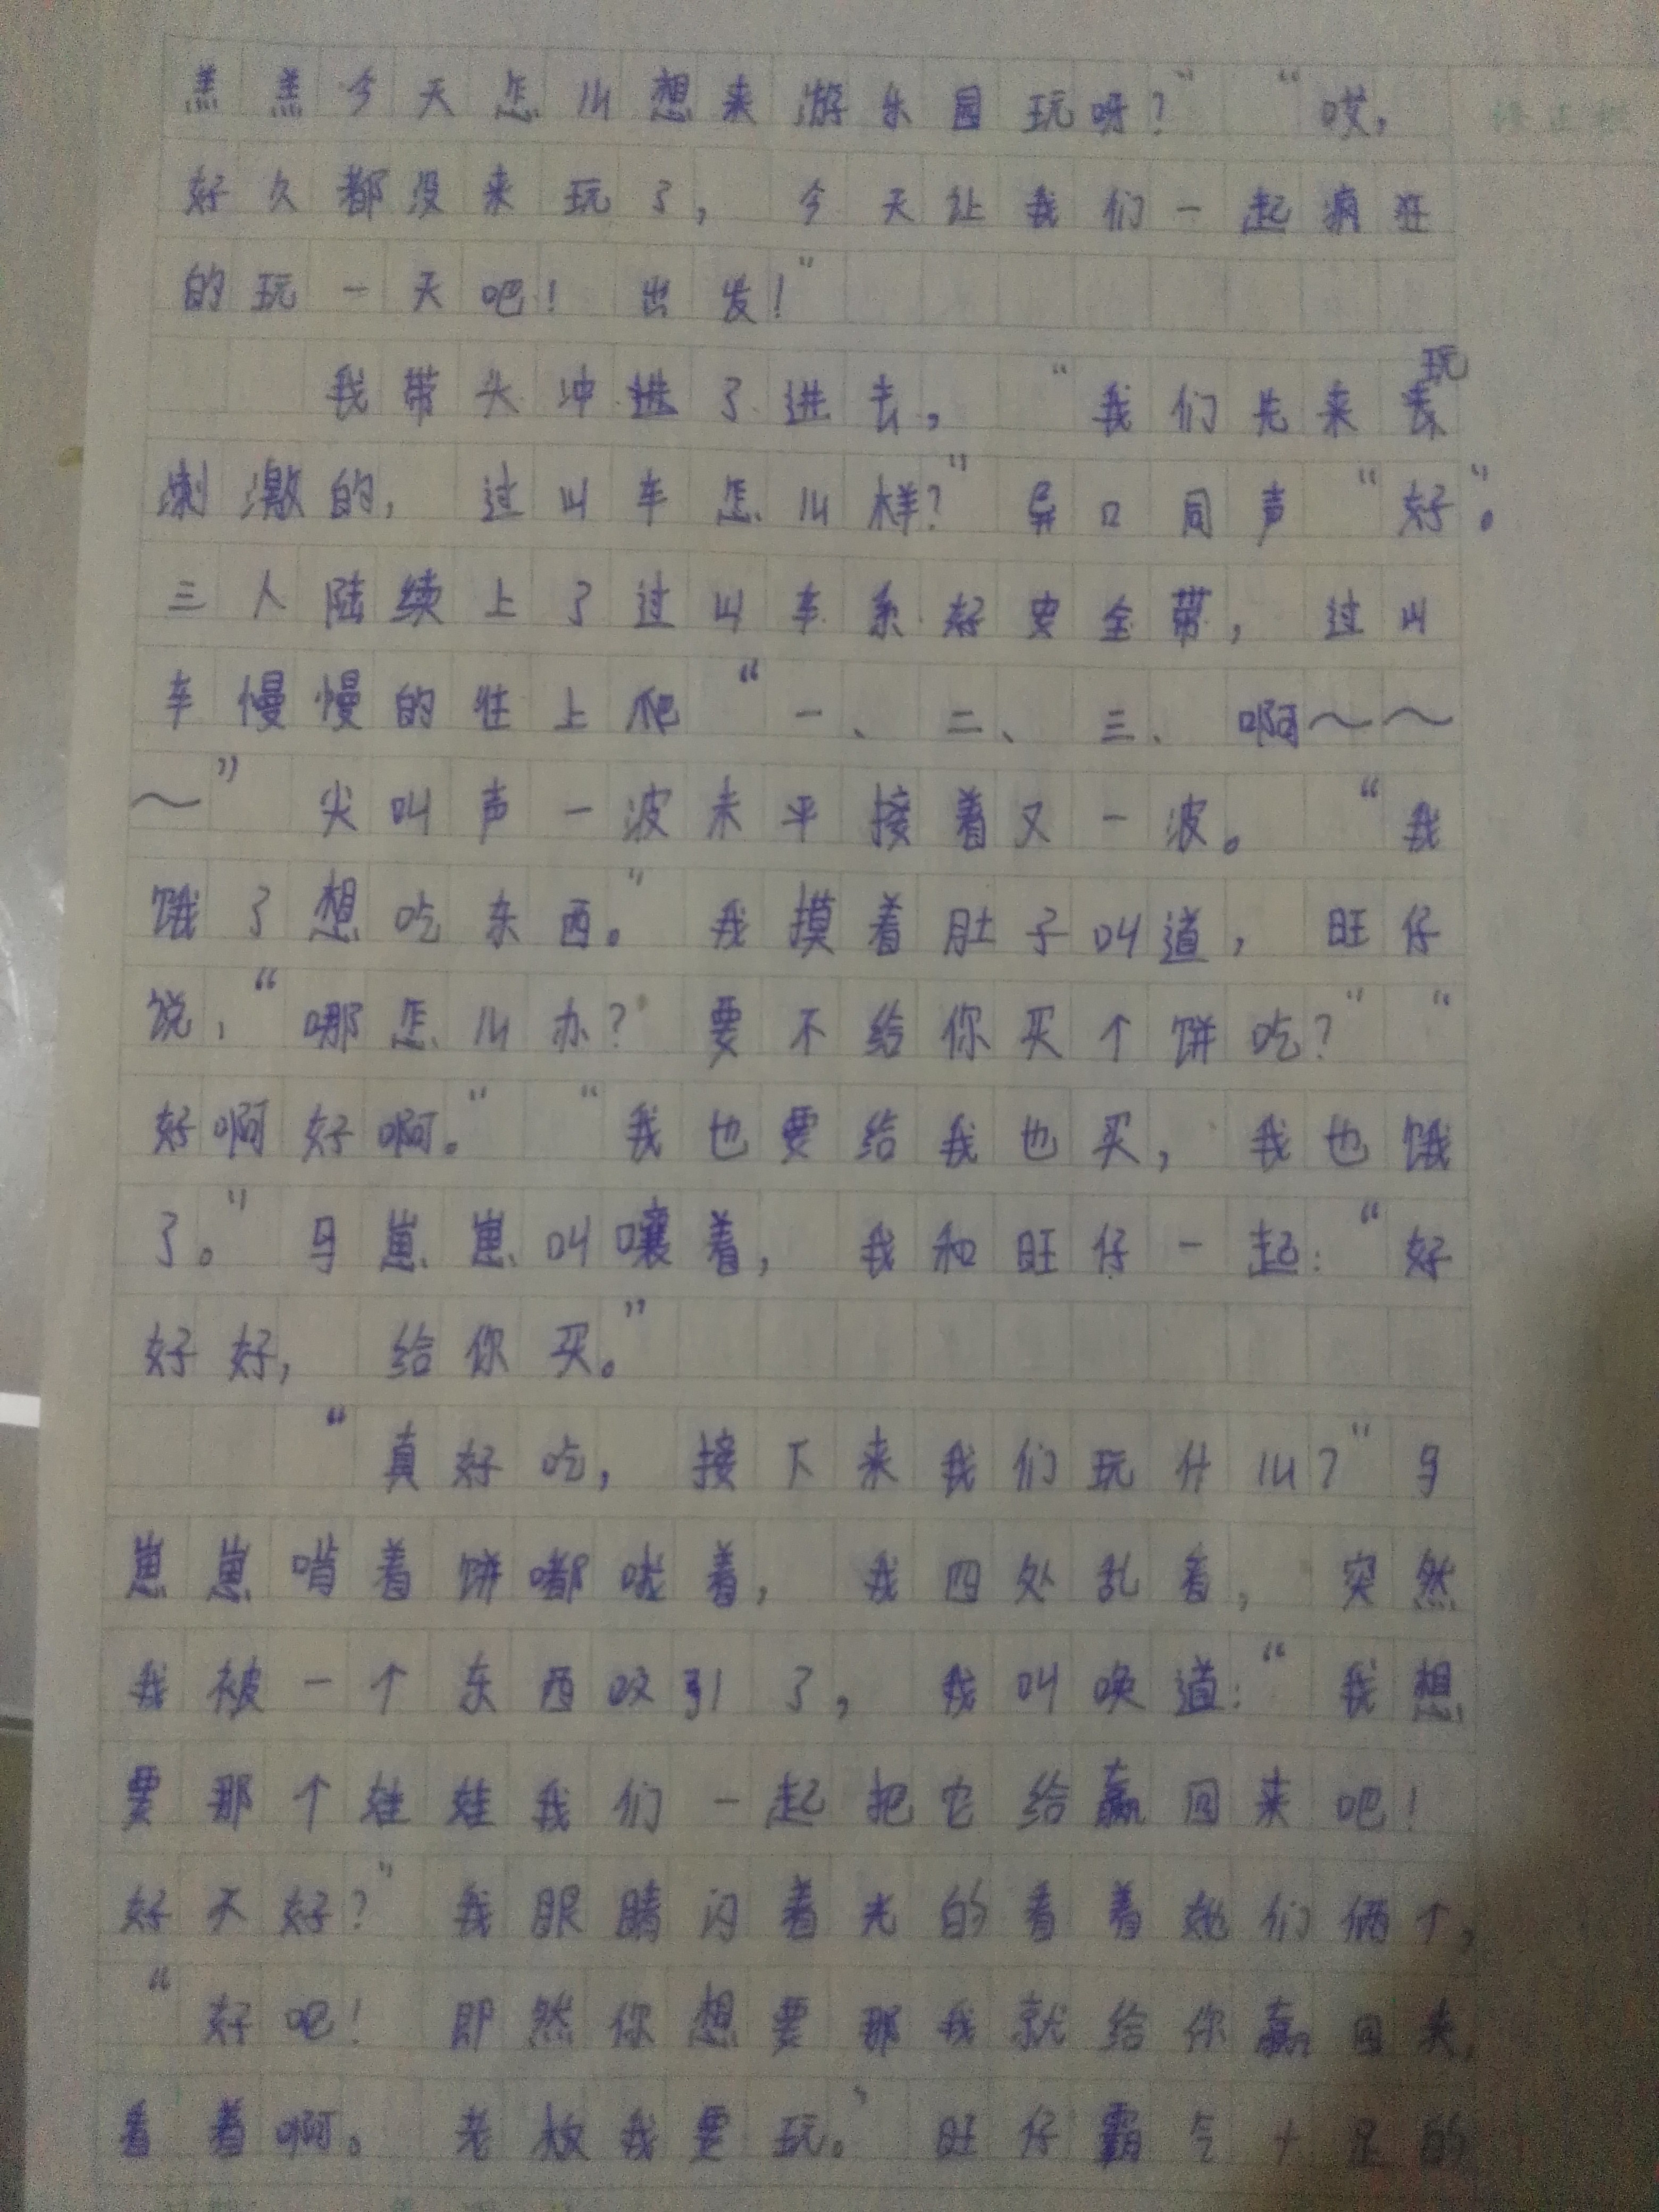 羔羔今天怎么想来游乐园玩呀？” “哎，
好久都没来玩了，今天让我们一起疯狂
的玩一天吧！出发！”
玩
我带头冲进了进去，“我们先来
刺激的，过山车怎么样？”异口同声“好”。
三人陆续上了过山车系好安全带，过山
车慢慢的往上爬“一、二、三、啊～～
～”尖叫声一波未平接着又一波。“我
饿了想吃东西。”我摸着肚子叫道，旺仔
说，“哪怎么办？要不给你买个饼吃？” “
好啊好啊。” “我也要给我也买，我也饿
了。”马崽崽叫嚷着，我和旺仔一起：“好
好好，给你买。”
“真好吃，接下来我们玩什么？”马
崽崽啃着饼嘟哝着，我四处乱看，突然
我被一个东西吸引了，我叫唤道：“我想
要那个娃娃我们一起把它给赢回来吧！
好不好？”我眼睛闪着光的看着她们俩个，
“好吧！即然你想要那我就给你赢回来，
看着啊。老板我要玩。”旺仔霸气十足的